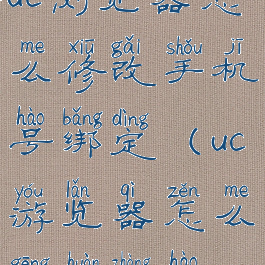 uc 浏览器怎
me xiū gǎi shǒu jī
么修改手机
hào bǎng dìng
号绑定（uc
yóu lǎn qì zěn me
游览器怎么
gēng huàn zhàng hào